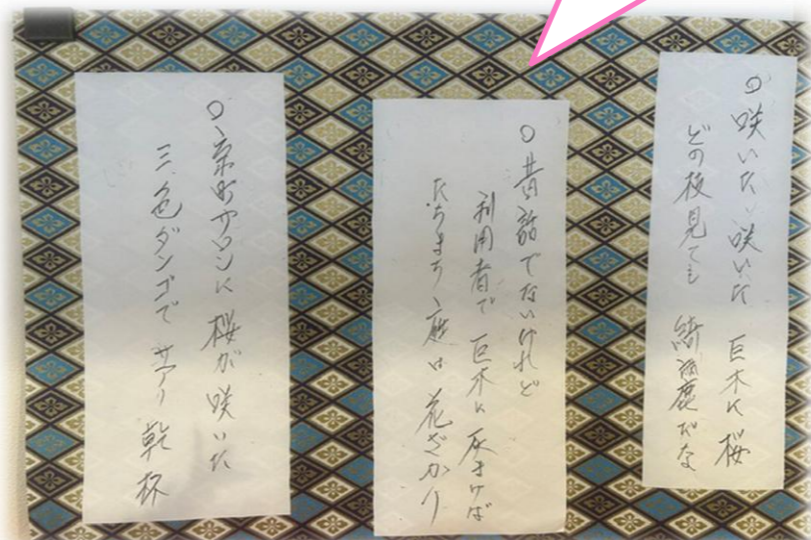 ○咲いた、咲いた 巨木に桜
どの枝見ても 綺麗だな
○昔話でないけれど
利用者で 巨木に灰まけば
たちまち 庭は 花ざかり
○京町サロンに 桜が咲いた
三色ダンゴで サアー 乾杯